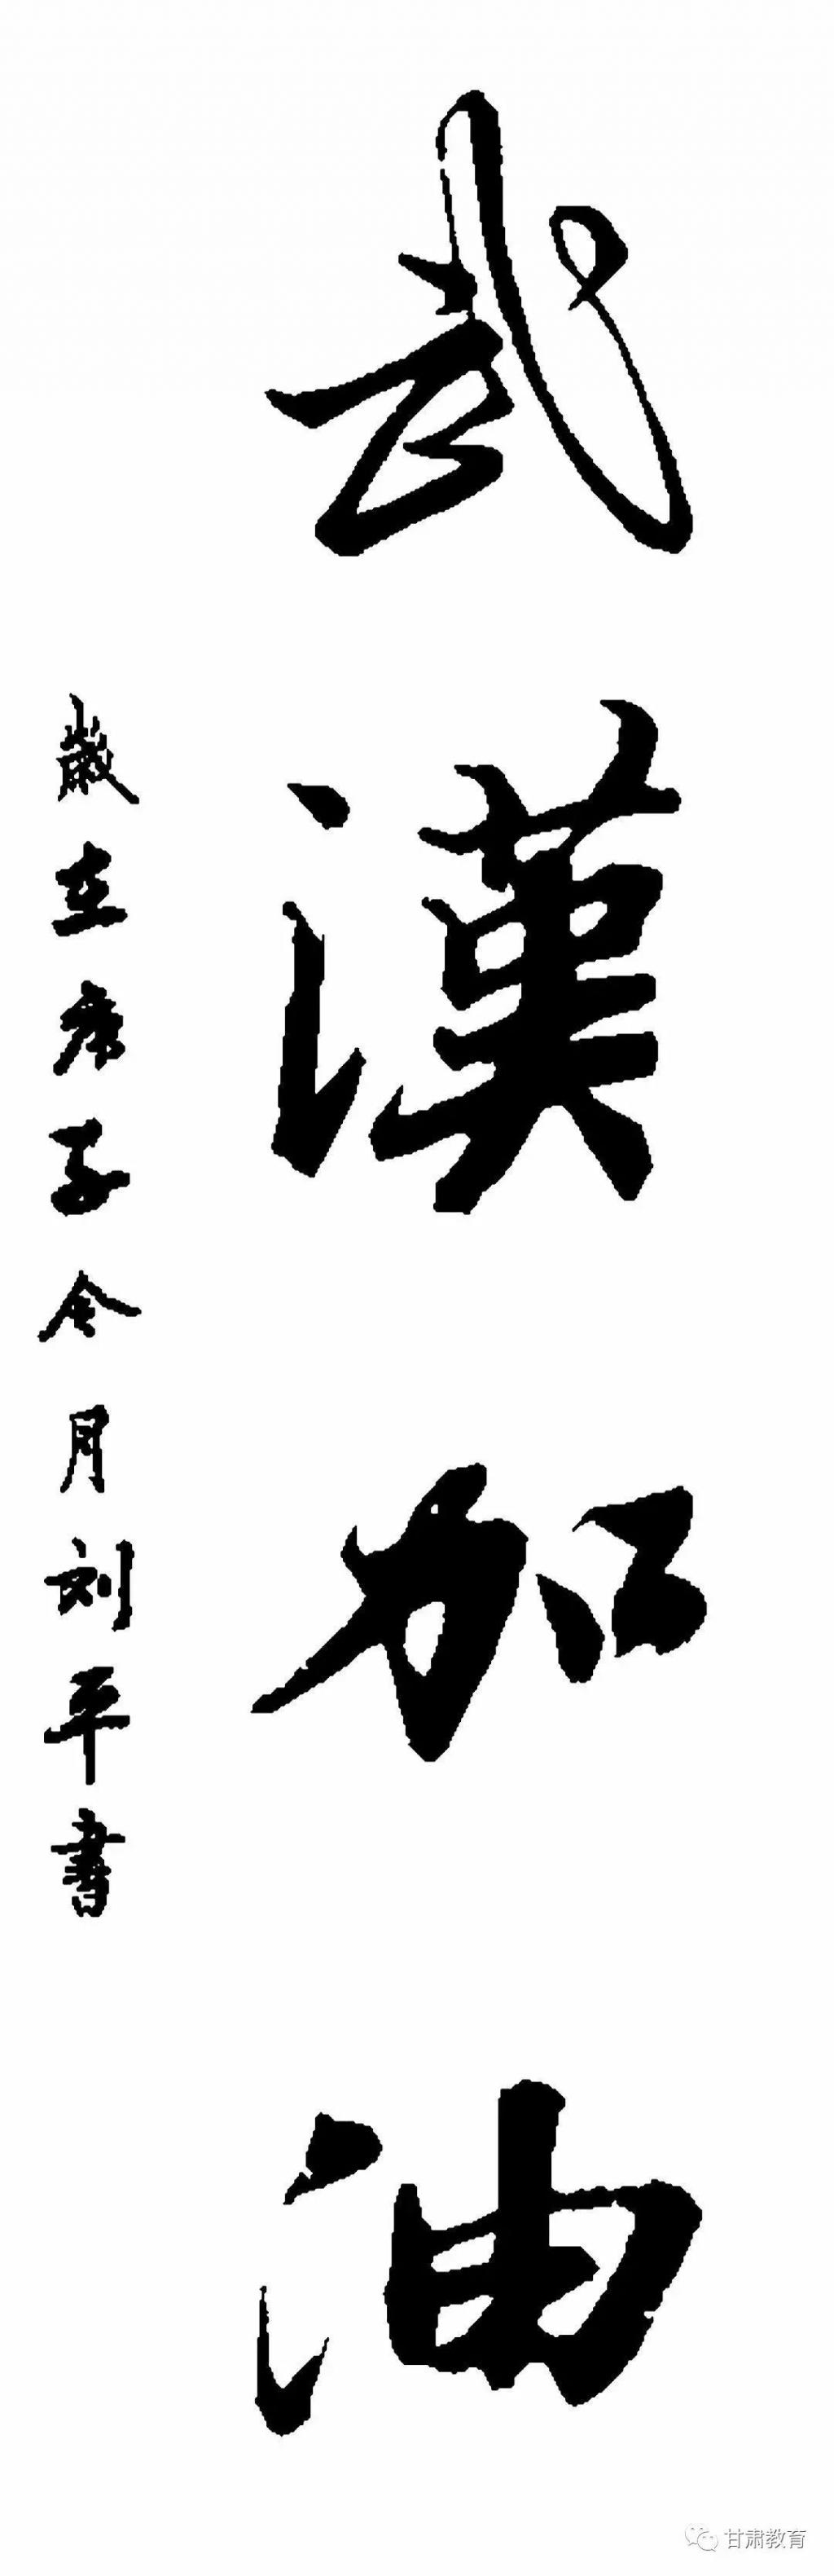 武漢加油
歲在庚子令月刘平書
甘肃教育